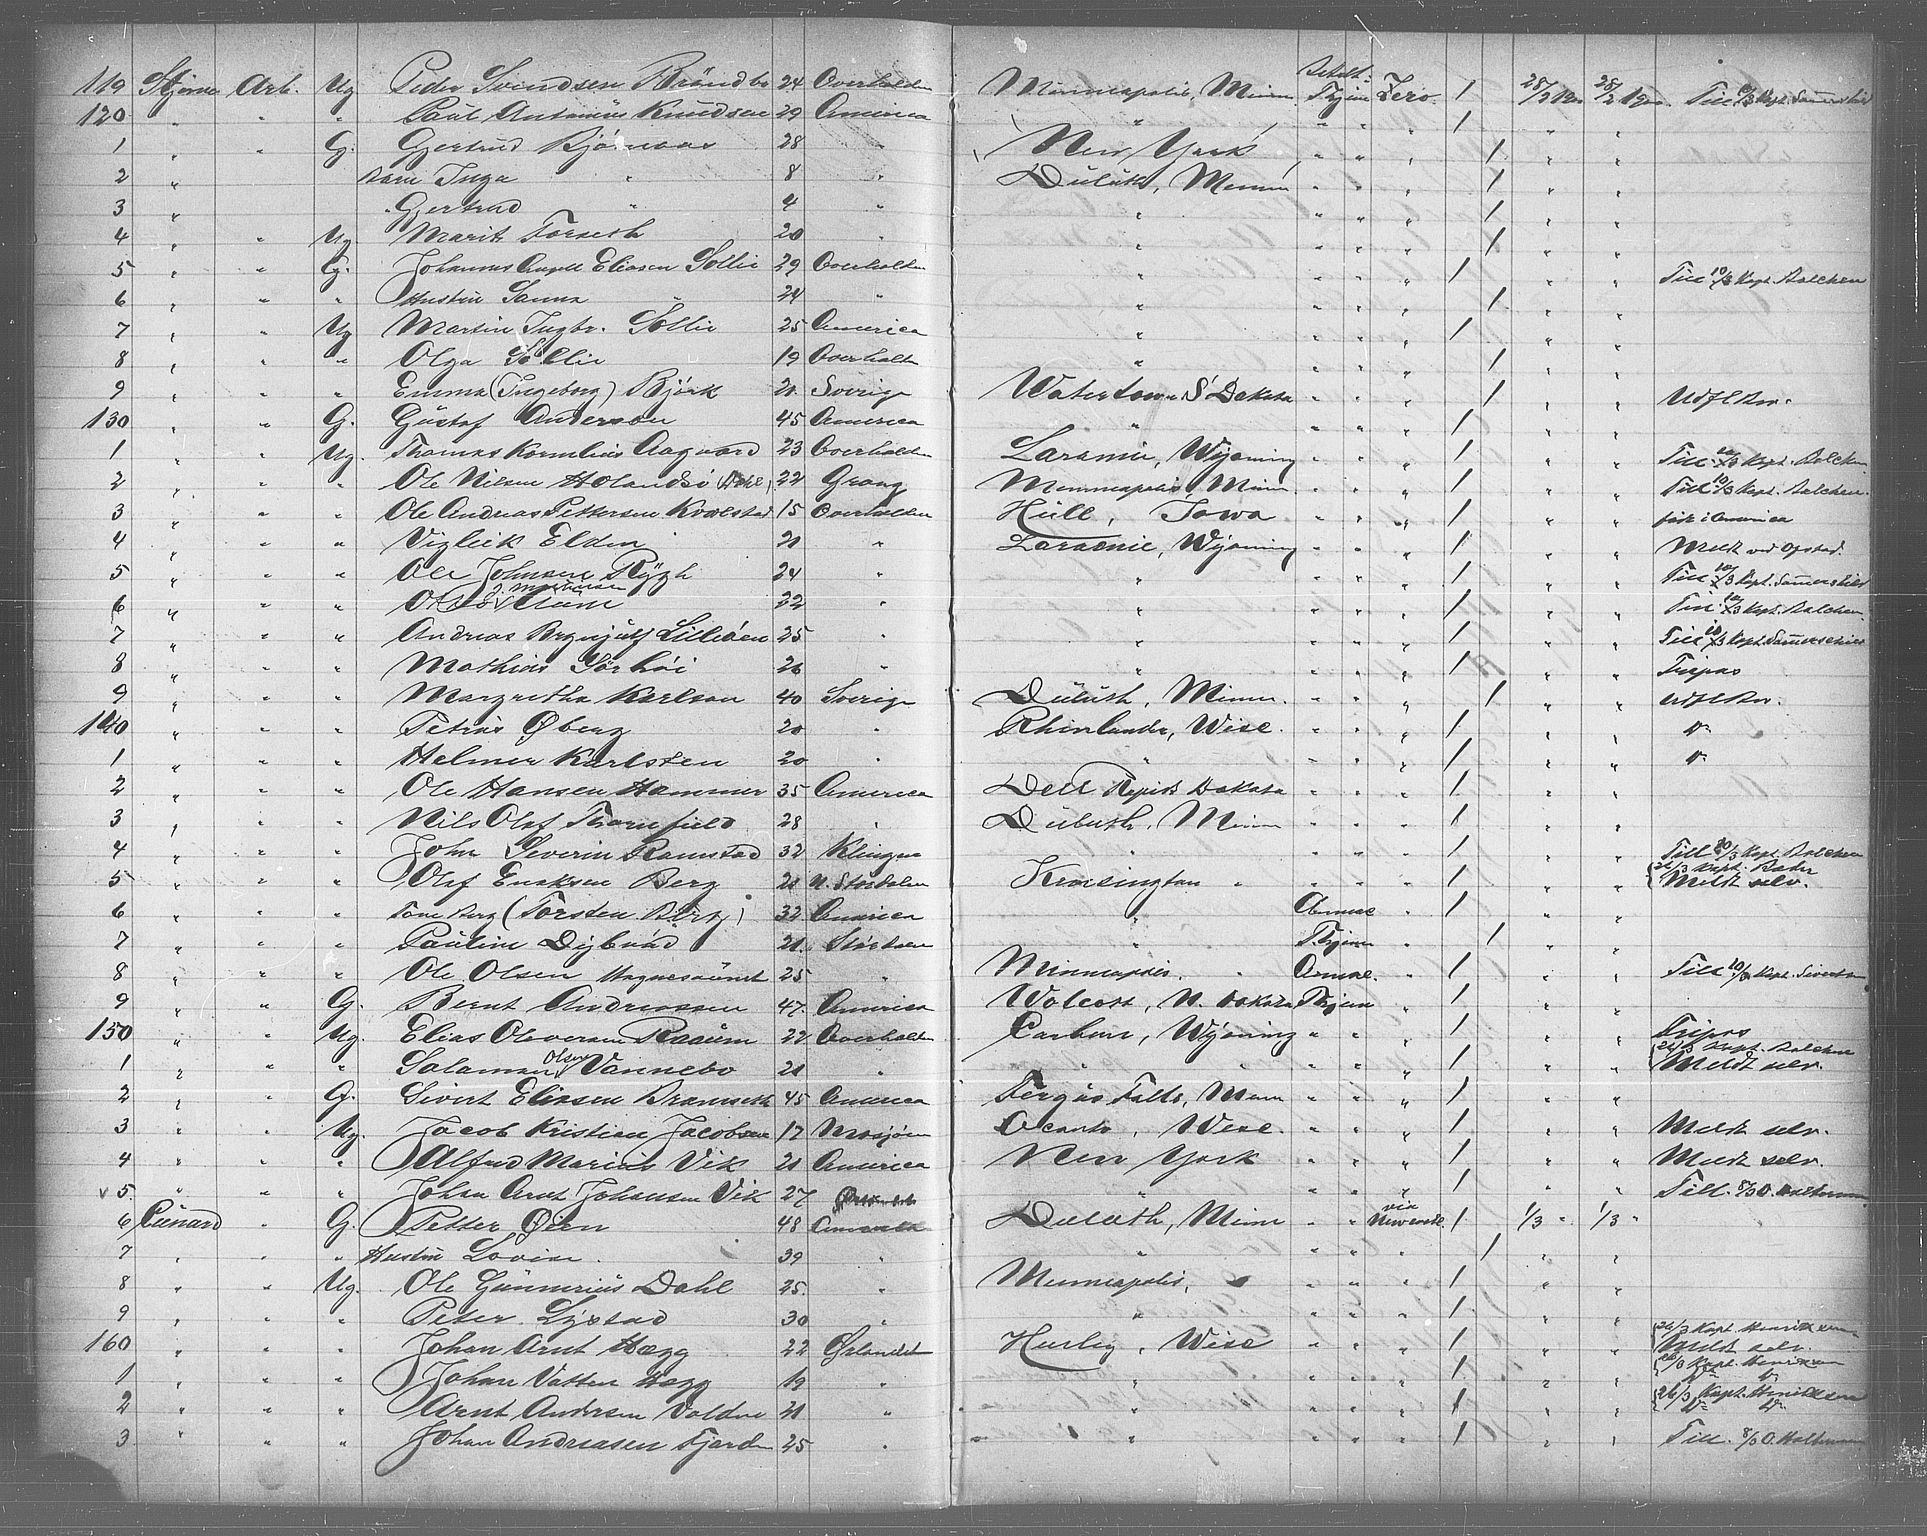 119 Stjernen Arb. Ug Peder Svendsen Brändbo 24 Overhalden Minneapolis, Minn Betalt. Thjem Zero. / 28/2 1900 28/2 1900 Till 10/3 Kapt. Sammerschield
120 " " " Paul Antonius Knudsen 29 America " " " " / " "
1 " " G. Gjertrud Bjørnaas 28 " New York " " " / " "
2 " Barn Inga " 8 " Duluth, Minn " " " / " "
3 " " Gjertrud " 4 " " " " " / " "
4 " " Ug Marit Forseth 20 " " " " " / " "
5 " " G. Johannes Angell Eliasen Sollie 29 Overhalden " " " " / " " Till 10/3 Kapt. Balchen
6 " " " Hustru Sanna " 24 " " " " " / " "
7 " " Ug Martin Ingbr. Sollie 25 America " " " " / " "
8 " " " Olga Sollie 19 Overhalden " " " " / " "
9 " " " Emma (Ingeborg) Björk 21 Sverige Watertown S Dakota " " " / " " Udfl Bev.
130 " " G. Gustaf Anderson 45 America " " " " / " "
1 " " Ug. Thomas Kornelius Aagaard 23 Overhalden Laramie, Wyoming " " " / " " Till 10/3 Kapt. Balchen
2 " " " Ole Nilsen Holandsö (Dahl) 22 Grong Minneapolis, Minn. " " " / " " Till 10/3 Kapt. Balchen.
3 " " " Ole Andreas Pettersen Kvalstad 15 Overhalden Hull, Iowa " " " / " " født i America
4 " " " Vigleik Elden 21 " Laramie, Wyoming " " " / " " Meldt ved Opstad.
5 " " " Ole Johnsen Rygh 24 " " " " " / " " Till 10/3 Kapt. Sammerschield
6 " " " 22 " " " " " / " " Till 10/3 Kapt. Balchen
7 " " " Andreas Brynjulf Lilleöen 25 " " " " " / " " Till 10/3 Kapt. Sammerschield
8 " " " Mathias Sörhöi 26 " " " " " / " " Fripas
9 " " " Margretha Karlson 40 Sverige Duluth, Minn. " " " / " " Udfl Bev.
140 " " " Petrus Øberg 20 " Rhinlander, Wisc. " " " / " "
1 " " " Helmer Karlsten 20 " " " " " / " "
2 " " " Ole Hansen Hammer 35 America Dell Rapids Dakota " " " / " "
3 " " " Nils Olof Thornfield 28 " Duluth, Minn " " " / " "
4 " " " John Severin Ramstad 32 Klinga " " " " / " " Till 20/3 Kapt. Balchen
5 " " " Olaf Eriksen Berg 21 N. Stördalen Kensington " " " " / " " {24/3 Kapt. Meldt selv.
6 " " " Tom Berg (Torsten Berg) 32 America " Amrc " / " "
7 " " " Pauline Digbvad 21. Stördalen " Thjem " / " "
8 " " " Ole Olsen 25 " Minneapolis. " Amrc. " / " " Till 20/3 Kapt. Sivertsen
9 " " G. Bernt Andreassen 47. America Wolcott, N. Dakota Thjem " / " "
150 " " Ug. Elias Oleversen Raaum 22 Overhalden Carbon, Wyoming " " " / " " Fripas
1 " " " Salamon Olsen Vannebo 21 " " " " " / " " {24/3 Kapt. Balchen Meldt selv.
2 " " G. Sivert Eliasen Bramseth 45 America Fergus Falls, Minn " " " / " "
3 " " Ug. Jacob Kristian Jacobsen 17 Mosjøen Oconto, Wisc. " " " / " " Meldt selv.
4 " " " Alfred Marius Vik 21 America New York " " " / " " Meldt selv.
5. " " " Johan Arnt Johansen Vik 27 " " " " / " " Till. 8/3 O. Holtermann
6 Cunard " G. Petter Öien 48 America Duluth, Minn " " via Newcastle. / 1/3 " 1/3 "
7 " " " Hustru Lovise 39 " " " " " / " "
8 " " Ug. Ole Gunnerius Dahl 25. " Minneapolis, " " " / " "
9 " " " Peter Lystad 30 " " " " " / " "
160 " " " Johan Arnt Hægg 22 Ørlandet Hurley, Wisc " " " / " " {26/3 Kapt. Henriksen Meldt selv.
1 " " " Johan Vatten Hægg 19 " " " " " / " " {26/3 Kapt. Henriksen
2 " " " Arnt Andersen Volden 21 " " " " " / " " {26/3 Kapt. Henriksen
3 " " " Johan Andreasen Fjorden 25 " " " " " / " " Till. 8/3 O. Holtermann